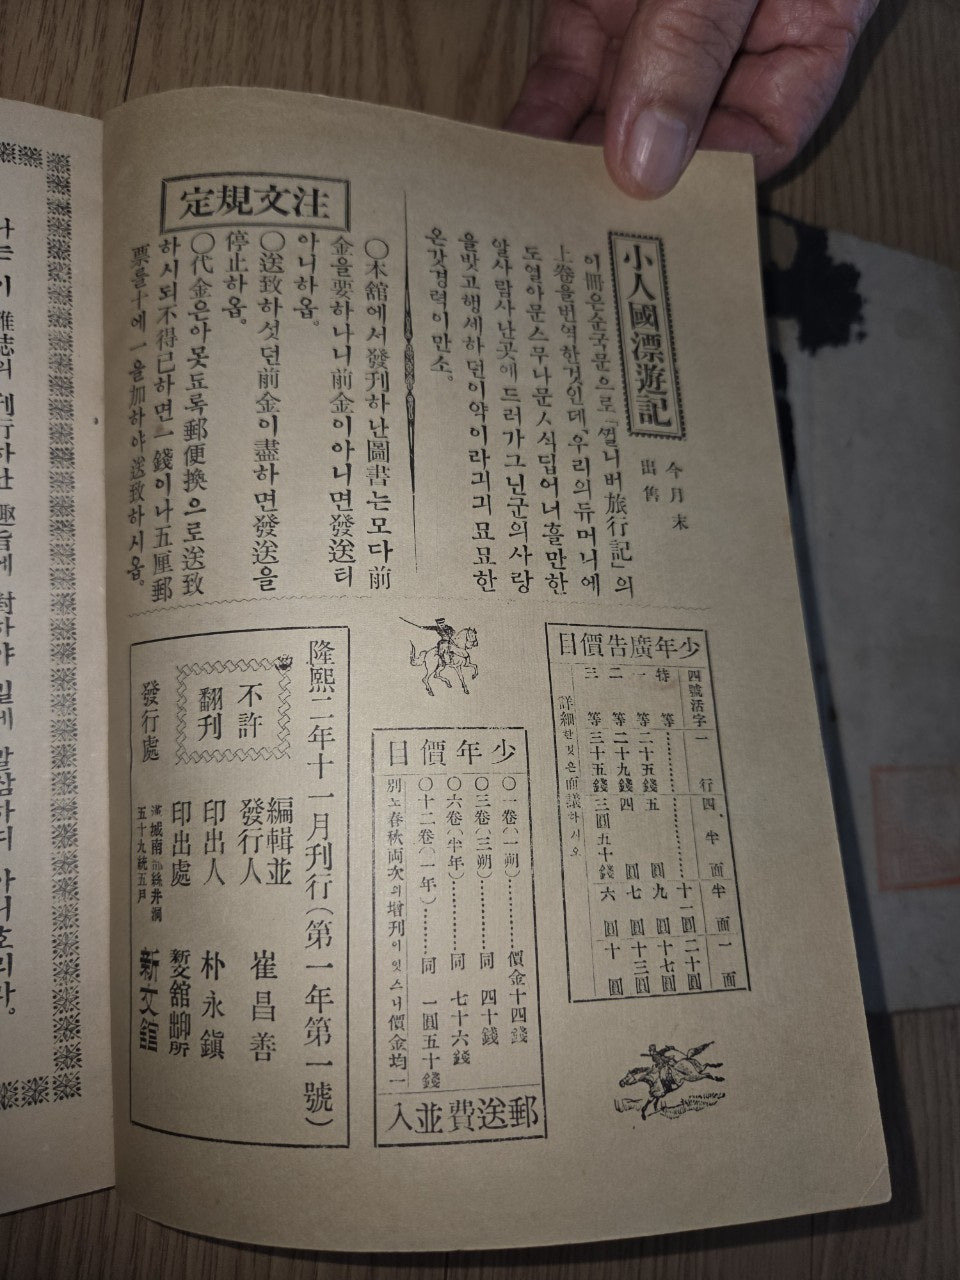 小人國漂遊記
今月末
出售
이冊은순국문으로「껄니버旅行記」의
上卷을번역한것인데、우리의듀머니에
도열아문스무나문人식딥어너흘만한
알사람사난곳에드러가그닌군의사랑
을밧고행세하던이약이라긔긔묘묘한
온갓경력이만소。
注文規定
〇本舘에서發刊하난圖書는모다前
金을要하나니前金이아니면發送티
아니하옵。
〇送致하섯던前金이盡하면發送을
停止하옵。
〇代金은아못됴록郵便換으로送致
하시되不得已하면一錢이나五厘郵
票를十에一을加하야送致하시옵。
少年廣告價目
四號活字 一行 四、半面 半面 一面
特等 十一圓 二十圓
一等 二十五錢 五圓 九圓 十七圓
二等 二十九錢 四圓 七圓 十三圓
三等 三十五錢 三圓五十錢 六圓 十圓
詳細한것은面議하시오
少年價目
〇一卷(一朔)價金十四錢
〇三卷(三朔)同 四十錢
〇六卷(半年)同 七十六錢
〇十二卷(一年)同 一圓五十錢
別노春秋両次의增刊이잇스니價金均一
郵送費並入
隆熙二年十一月刊行(第一年第一號)
不許
翻刊
編輯並
發行人 崔昌善
印出人 朴永鎭
印出處 新文舘印出所
發行處
五十九統五戶
新文舘
나는이雜誌의刊行하난趣旨에對하야길게말삼하디아니호리라。